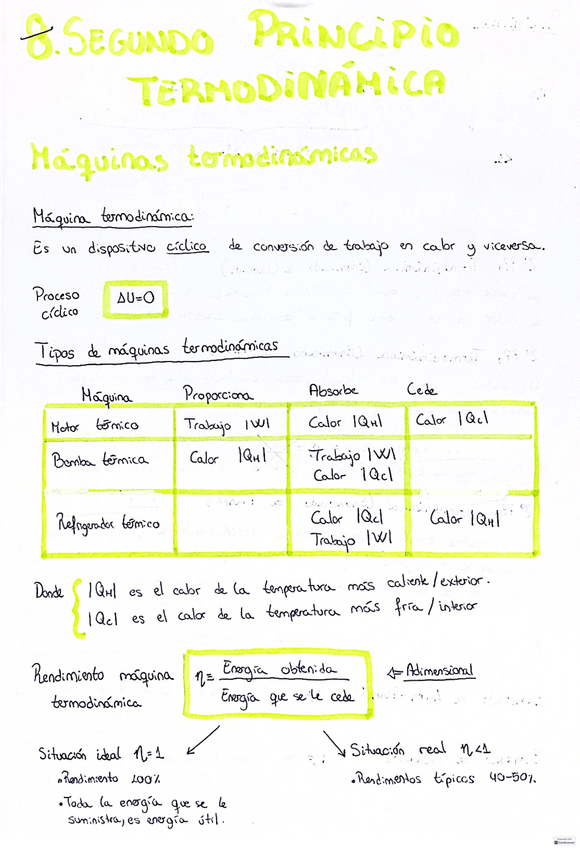 8. SEGUNDO PRINCIPIO
TERMODINÁMICA
Máquinas termodinámicas
Máquina termodinámica:
Es un dispositivo cíclico de conversión de trabajo en calor y viceversa.
Proceso cíclico ΔU=0
Tipos de máquinas termodinámicas
Máquina Proporciona Absorbe Cede
Motor térmico Trabajo |W| Calor |QH| Calor |Qc|
Bomba térmica Calor |QH| Trabajo |W|
Calor |Qc|
Refrigerador térmico Calor |Qc| Calor |QH|
Trabajo |W|
Donde { |QH| es el calor de la temperatura más caliente/exterior.
|Qc| es el calor de la temperatura más fría/interior
Rendimiento máquina termodinámica η = Energía obtenida / Energía que se le cede ⇐ Adimensional
Situación ideal η=1
• Rendimiento 100%
• Toda la energía que se le
suministra, es energía útil.
Situación real η<1
• Rendimientos típicos 40-50%.